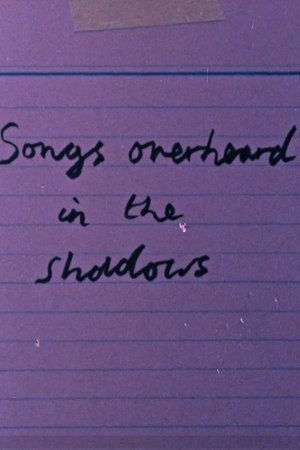 Songs overheard
in the
shadows